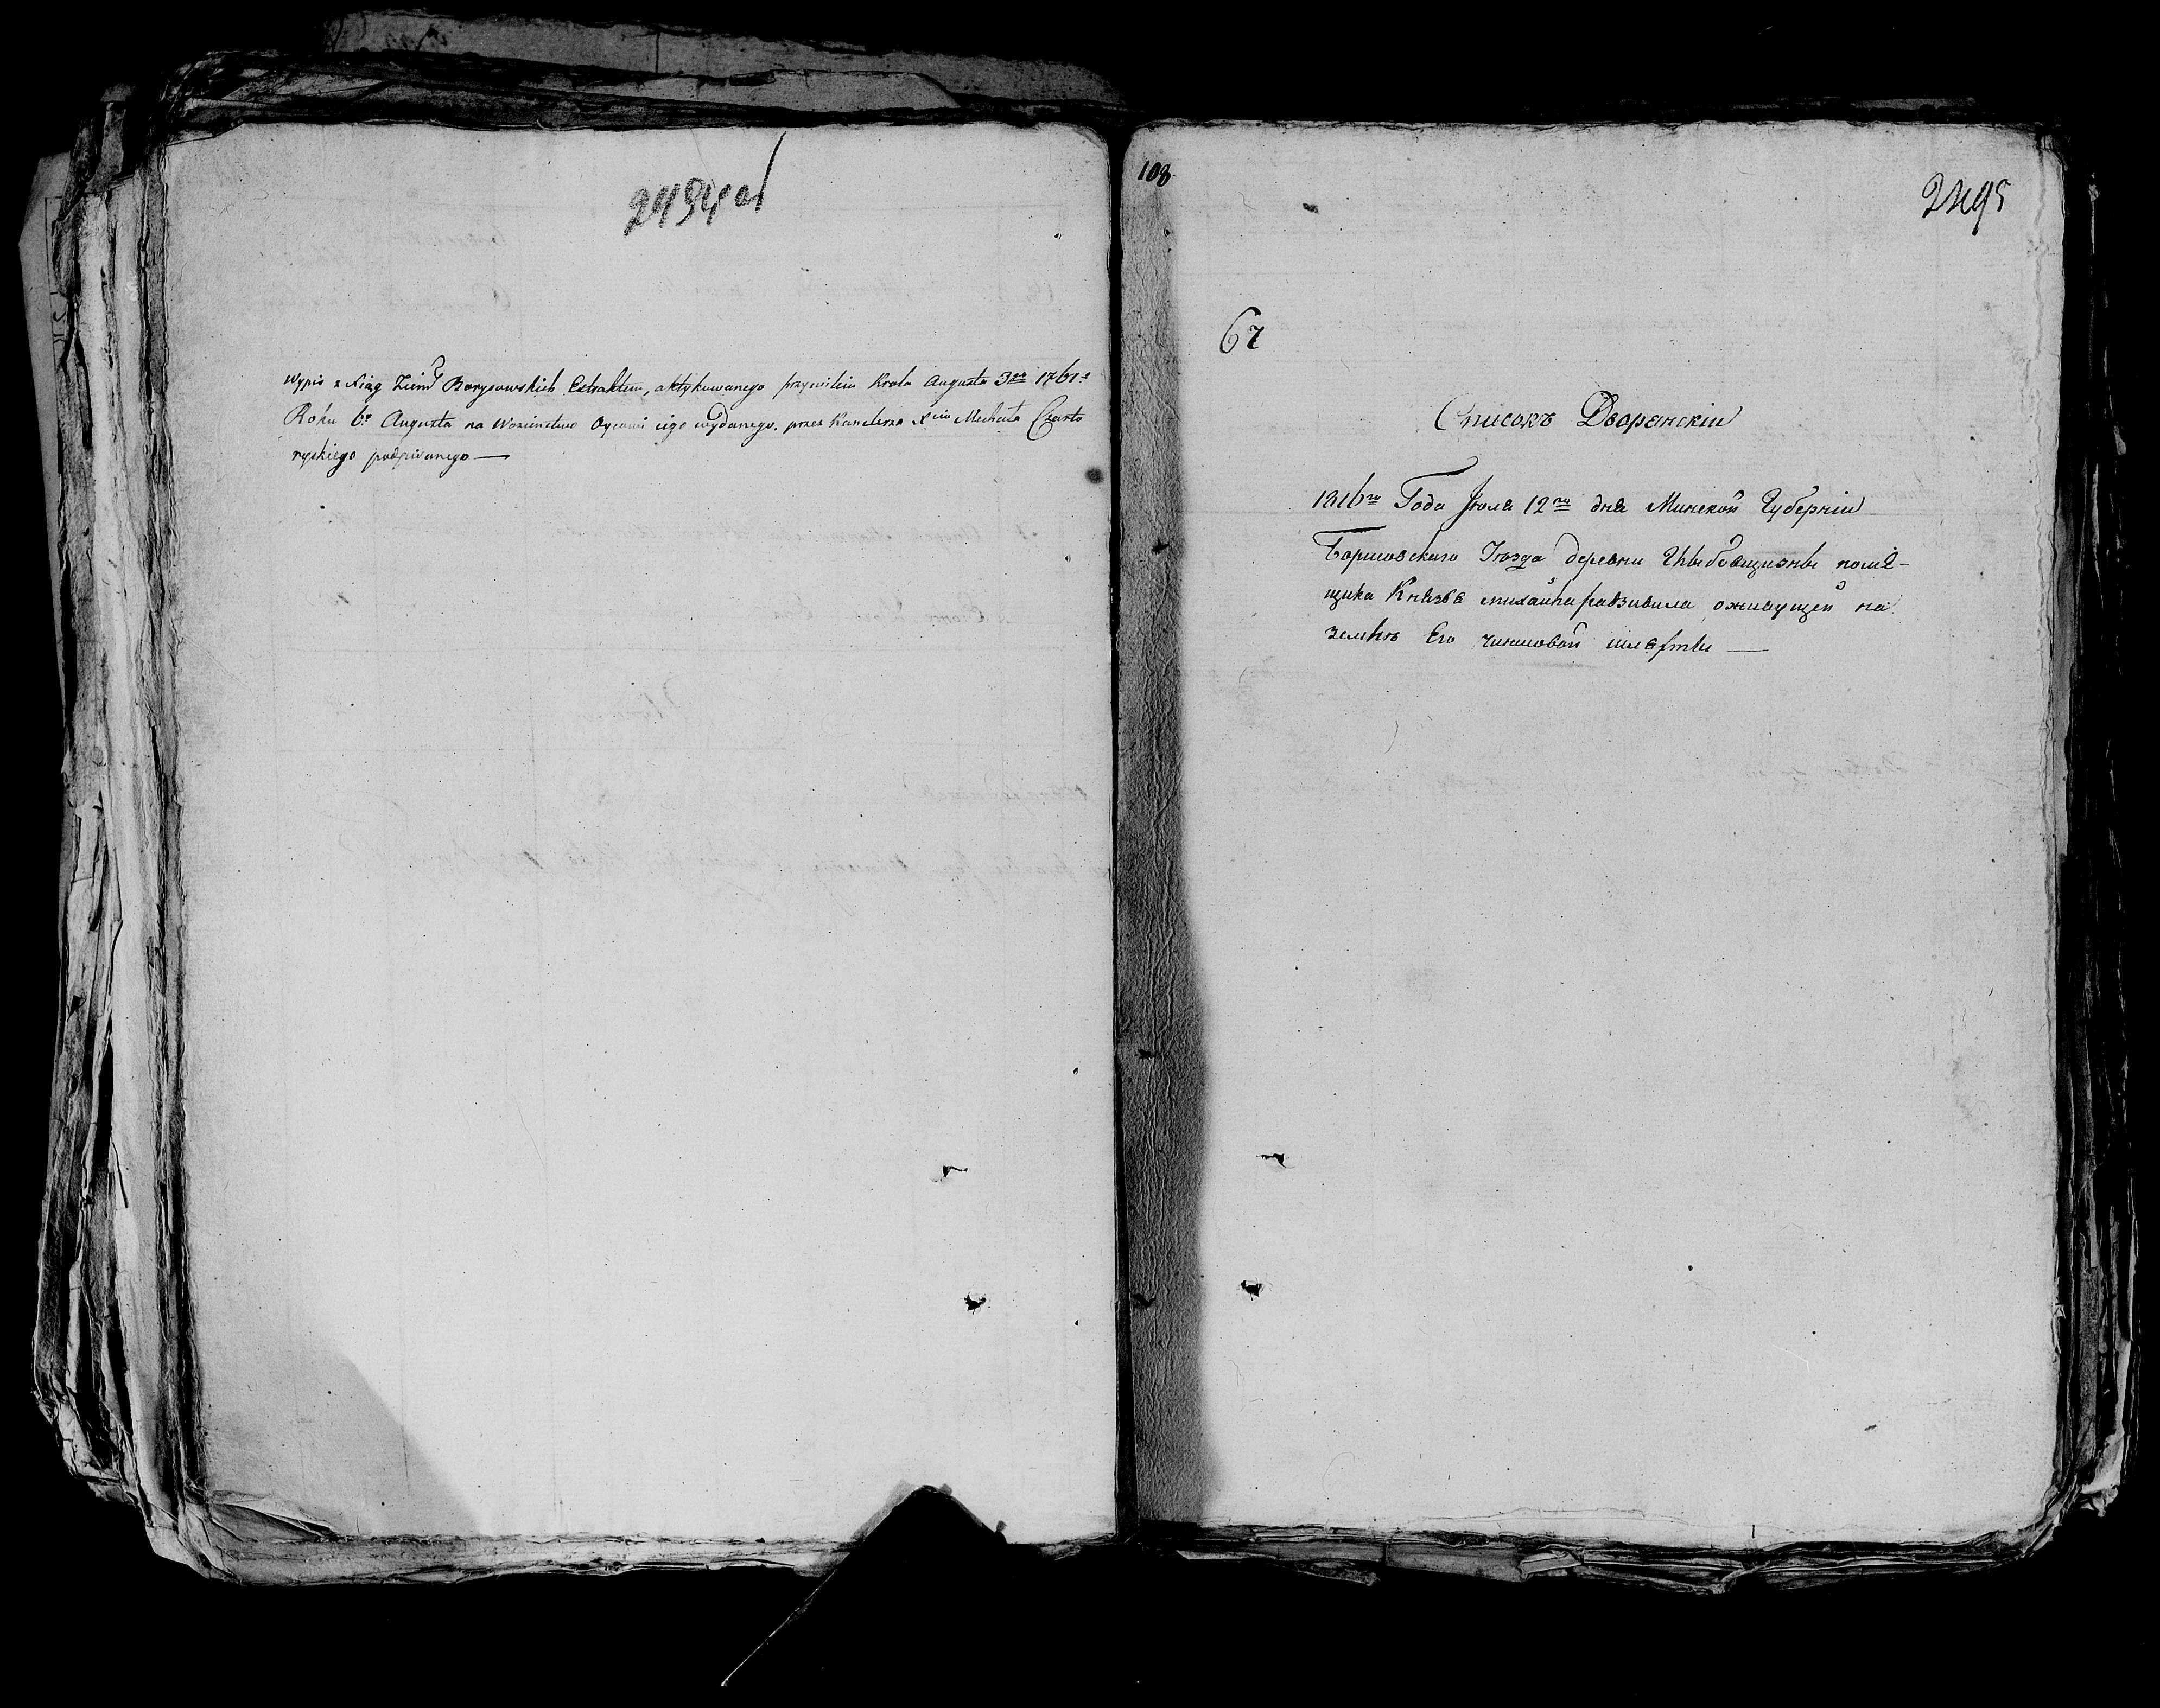 2494 об
Wypis z Xiąg Ziem: Borysowskich Extraktem, aktykowanego przywileiu Krola Augusta 3go 1761:
Roku 6: Augusta na Wozienstwo Oycowi iego wydanego, przez Kanclerza Xcia Michała Czarto
ryskiego podpisanego —
108
2495
67
Списокъ Дворянскіи
1816го Года Июля 12го дня Минской Губерніи
Борисовскаго Уѣзда деревни помѣ-
щика Князя михаила радзивила, оживущей на
землѣ Его чиншовой шляхты —